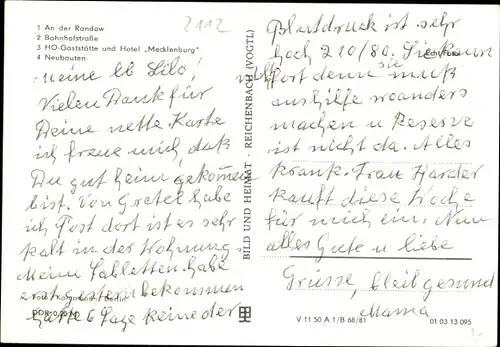 2112
1 An der Randow
2 Bahnhofstraße
3 HO-Gaststätte und Hotel „Mecklenburg"
4 Neubauten
Meine lb Lilo!
Vielen Dank für
Deine nette Karte
ich freue mich, daß
Du gut heim gekommen
bist. Von Gretel habe
ich Post dort ist es sehr
kalt in der Wohnung.
Meine Tabletten habe
erst gestern bekommen
hatte 6 Tage keine der
Foto: Berlin
BILD UND HEIMAT · REICHENBACH (VOGTL)
Blutdruck ist sehr
hoch 210/80. Sie kann
Echt Foto
nicht fort denn sie muß
aushilfe woanders
machen u Reserve
ist nicht da. Alles
krank. Frau Harder
kauft diese Woche
für mich ein. Nun
alles Gute u liebe
Grüsse, bleib gesund
Mama
V 11 50 A 1/B 68/81
01 03 13 095